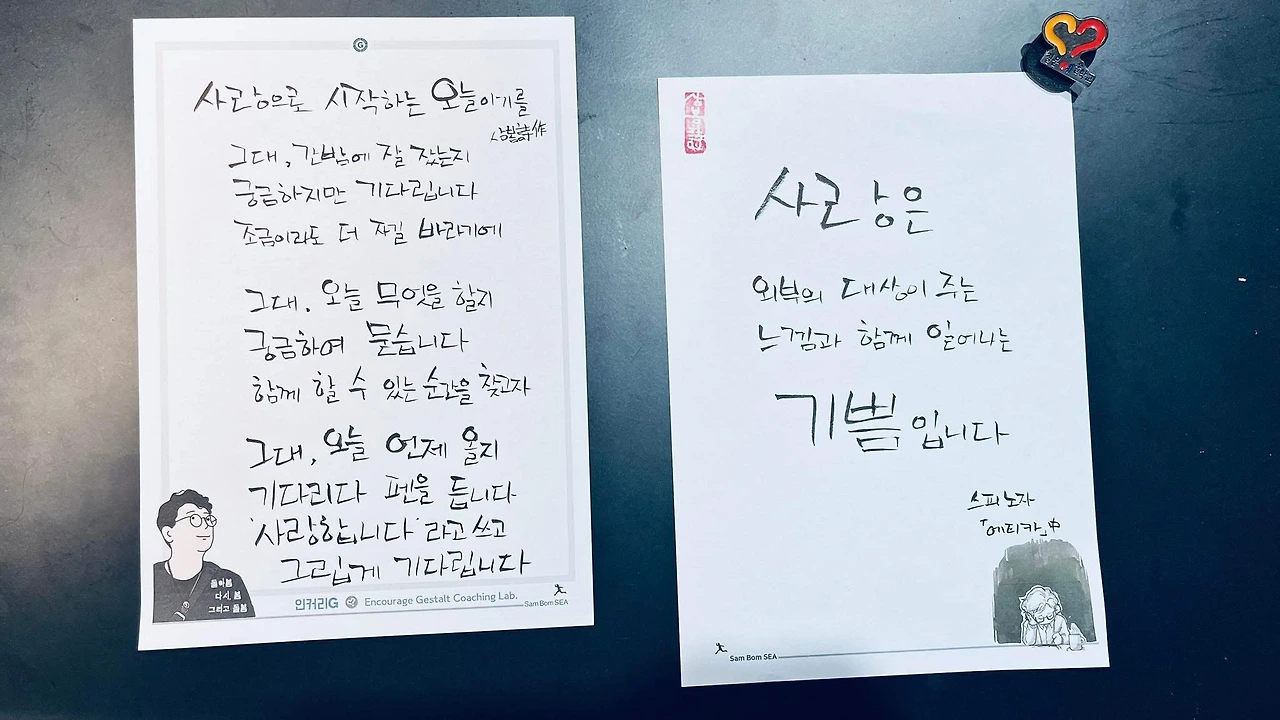 사랑으로 시작하는 오늘이기를
그대, 간밤에 잘 잤는지
궁금하지만 기다립니다
조금이라도 더 쟀길 바라기에
그대, 오늘 무엇을 할지
궁금하여 묻습니다
함께 할 수 있는 순간을 찾고자
그대, 오늘 언제 올지
기다리다 펜을 듭니다
'사랑합니다'라고 쓰고
그립게 기다립니다
돌아봄
다시, 봄
그리고 돌봄
인커리G Encourage Gestalt Coaching Lab.
Sam Bom SEA
사랑은
외부의 대상이 주는
느낌과 함께 일어나는
기쁨입니다
스피노자
「에티카」中
Sam Bom SEA